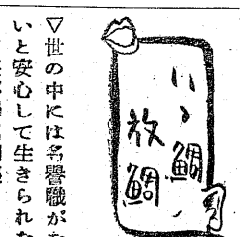 鯛
放鯛
▽世の中には名譽職がな
いと安心して生きられな